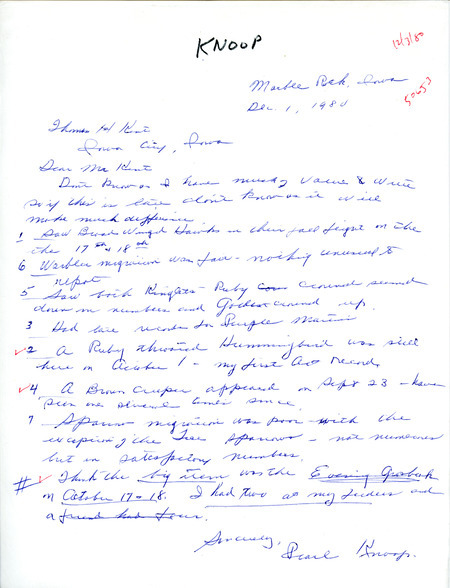 KNOOP
12/3/80
Marble Rock, Iowa
50653
Dec. 1, 1980
Thomas H Kent
Iowa City, Iowa
Dear Mr Kent
Don't know as I have much of value to write
so if this is late don't know as it will
make much difference
1 Saw Broad Winged Hawks in their fall flight on the
the 17th & 18th
6 Warbler migration was fair - nothing unusual to
report
5 Saw both Kinglets - Ruby crowned seemed
down in numbers and Golden crowned up.
3 Had late records for Purple Martin
2 A Ruby throated Hummingbird was still
here on October 1 - my first Oct record
4 A Brown Creeper appeared on Sept 23 - have
seen one several times since
7 Sparrow migration was poor with the
exception of the Tree Sparrows - not numerous
but in satisfactory numbers.
# I think the big item was the Evening Grosbeak
on October 17 & 18. I had two at my feeders and
a friend had four.
Sincerely,
Pearl Knoop.